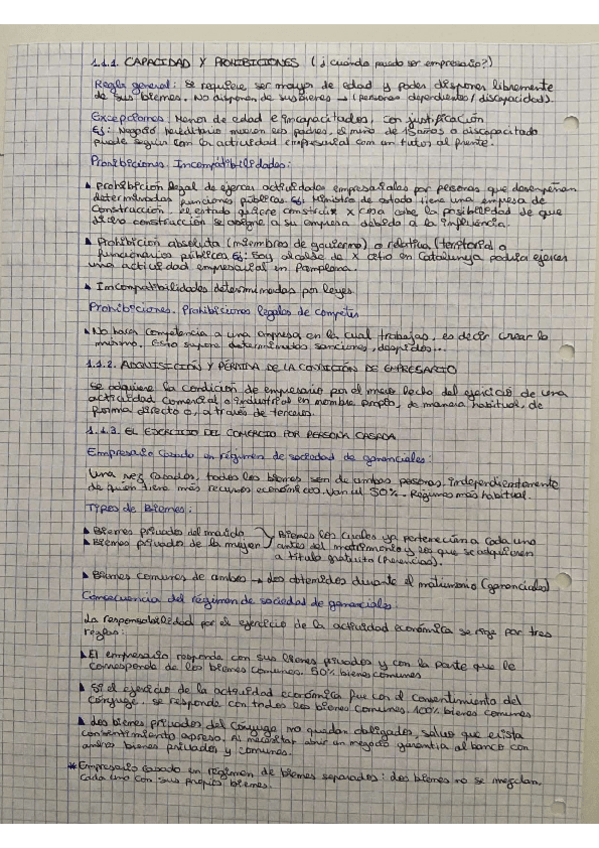 1.1.1. CAPACIDAD Y PROHIBICIONES (¿Cuándo puedo ser empresario?)
Regla general: Se requiere ser mayor de edad y poder disponer libremente
de sus bienes. No disponen de sus bienes → (personas dependientes/discapacidad).
Excepciones: Menor de edad e incapacitados, con justificación
Ej: Negocio hereditario mueren los padres, el niño de 15 años o discapacitado
puede seguir con la actividad empresarial con un tutor al frente.
Prohibiciones. Incompatibilidades:
▲ Prohibición legal de ejercer actividades empresariales por personas que desempeñan
determinadas funciones públicas. Ej: Ministro de estado tiene una empresa de
Construcción, el estado quiere construir x cosa cabe la posibilidad de que
dicha construcción se asigne a su empresa debido a la influencia.
▲ Prohibición absoluta (miembros de gobierno) o relativa (territorial o
funcionarios públicos. Ej: Soy alcalde de X cito en Catalunya podría ejercer
una actividad empresarial en Pamplona.
▲ Imcompatibilidades determinadas por leyes
Prohibiciones. Prohibiciones legales de competir
▲ No hacer competencia a una empresa en la cual trabajas, es decir, crear lo
mismo. Esto supone determinadas sanciones, despidos...
1.1.2. ADQUISICIÓN Y PÉRDIDA DE LA CONDICIÓN DE EMPRESARIO
Se adquiere la condición de empresario por el mero hecho del ejercicio de una
actividad comercial o industrial en nombre propio, de manera habitual, de
forma directa o, a través de terceros.
1.1.3. EL EJERCICIO DEL COMERCIO POR PERSONA CASADA
Empresario casado en régimen de sociedad de gananciales:
Una vez casados, todos los bienes son de ambas personas. Independientemente
de quien tiene más recursos económicos. Van al 50%. Régimen más habitual.
TIPOS de Bienes:
▲ Bienes privados del marido
▲ Bienes privados de la mujer
Bienes los cuales ya pertenecían a cada uno
antes del matrimonio y los que se adquieren
a título gratuito (herencias).
▲ Bienes comunes de ambos → los obtenidos durante el matrimonio (gananciales)
Consecuencia del régimen de sociedad de gananciales:
La responsabilidad por el ejercicio de la actividad económica se rige por tres
reglas:
▲ El empresario responde con sus bienes privados y con la parte que le
corresponde de los bienes comunes. 50% bienes comunes
▲ Si el ejercicio de la actividad económica fue con el consentimiento del
cónyuge, se responde con todos los bienes comunes. 100% bienes comunes
▲ Los bienes privados del cónyuge no quedan obligados, salvo que exista
consentimiento expreso. Al necesitar abrir un negocio garantía al banco con
ambos bienes privados y comunes.
* Empresario casado en régimen de bienes separados: Los bienes no se mezclan.
Cada uno con sus propios bienes.